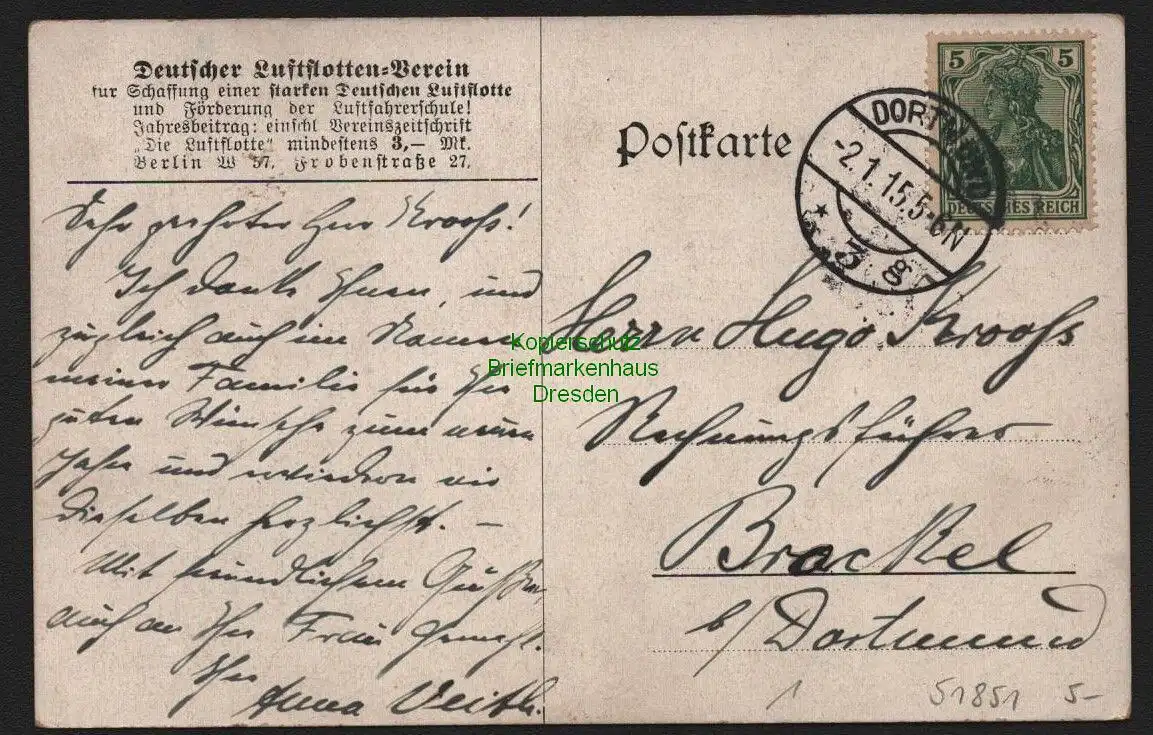 Deutscher Luftflotten-Verein
fur Schaffung einer starken Deutschen Luftflotte
und Förderung der Luftfahrerschule!
Jahresbeitrag: einschl Vereinszeitschrift
„Die Luftflotte" mindestens 3,— Mk.
Berlin W 57, Frobenstraße 27.
Sehr geehrter Herr Kroohs!
Ich danke Ihnen, und
zugleich auch im Namen
meiner Familie für Ihre
guten Wünsche zum neuen
Jahre und erwiedern wir
dieselben herzlichst. –
Mit freundlichem Gruß
auch an Ihre Frau Gemahl.
Ihre
Anna Veith.
Postkarte
5 5
DEUTSCHES REICH
DORTMUND
-2.1.15.5-6N
* 3 g
Herrn Hugo Kroohs
Rechnungsführer
Brackel
b/Dortmund
Kopierschutz
Briefmarkenhaus
Dresden
51851 5-